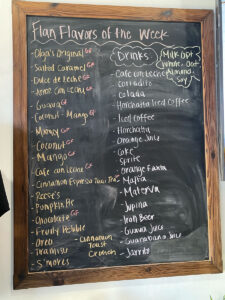 Flan Flavors of the Week
- Olga's Original GF
- Salted Caramel GF
- Dulce de Leche GF
- Arroz con leche GF
- Guava GF
- Coconut - Mango GF
- Mamey GF
- Coconut GF
- Mango GF
- Cafe con Leche GF
- Cinnamon Espresso
- Reese's
- Pumpkin Pie
- Chocolate GF
- Fruity Pebble
- Oreo
- Tiramisu
- S'mores
- Cinnamon
Toast
Crunch
Drinks
Milk Opt
Whole, Oat
Almond,
Soy
- Cafe con Leche
- Cortadito
- Colada
- Horchata Iced Coffee
- Iced Coffee
- Horchata
- Orange Juice
- Coke
- Sprite
- Orange Fanta
- Malta
- Materva
- Jupina
- Iron Beer
- Guava Juice
- Guanabana Juice
- Jarrito